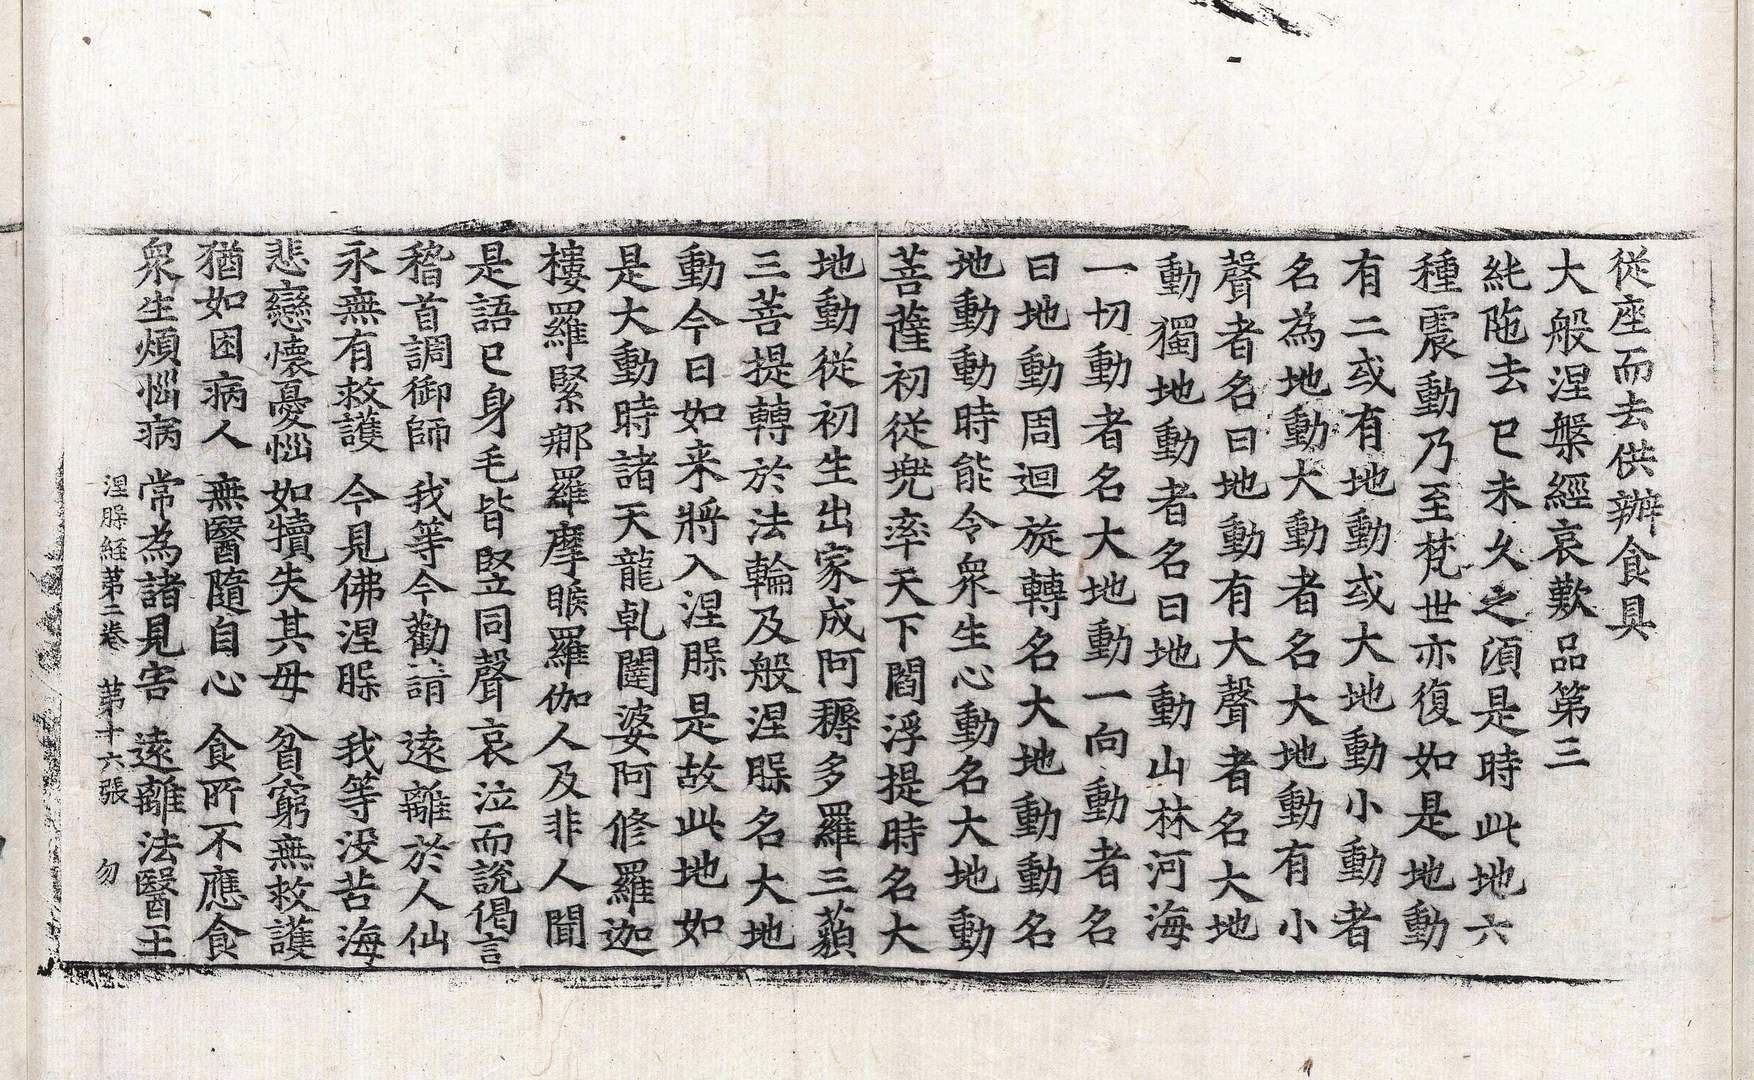 從座而去供辦食具
大般涅槃經哀歎品第三
純陁去已未久之湏是時此地六
種震動乃至梵世亦復如是地動
有二或有地動或大地動小動者
名為地動大動者名大地動有小
聲者名曰地動有大聲者名大地
動獨地動者名曰地動山林河海
一切動者名大地動一向動者名
曰地動周迴旋轉名大地動動名
地動動時能令衆生心動名大地動
菩薩初從兠率天下閻浮提時名大
地動從初生出家成阿耨多羅三藐
三菩提轉於法輪及般涅脲名大地
動今日如来將入涅脲是故此地如
是大動時諸天龍乹闥婆阿修羅迦
樓羅緊那羅摩睺羅伽人及非人聞
是語已身毛皆竪同聲哀泣而說偈言
稽首調御師　我等今勸請　遠離於人仙
永無有救護　今見佛涅脲　我等没苦海
悲戀懐憂惱　如犢失其母　貧窮無救護
猶如困病人　無醫隨自心　食所不應食
衆生煩惱病　常為諸見害　遠離法醫王
涅脲經第二卷　第十六張　勿